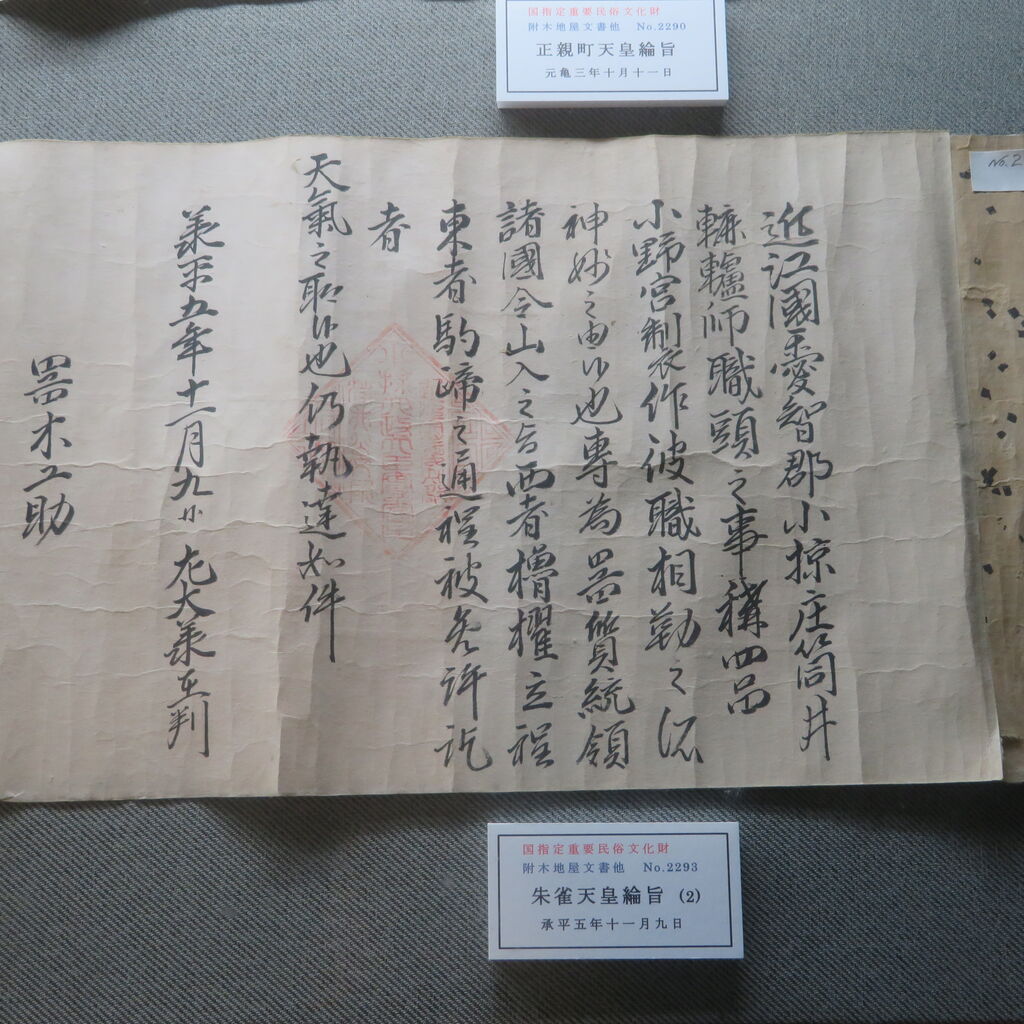 国指定重要民俗文化財
附木地屋文書他 No.2290
正親町天皇綸旨
元亀三年十月十一日
No.2
近江國愛智郡小椋庄筒井
轆轤師職頭之事稱四品
小野宮製作彼職相勤之
神妙之由也専為器質統領
諸國令山入之旨西者櫓櫂立程
東者駒蹄之通程被免許訖
者
天氣之所也仍執達如件
承平五年十一月九 左大丞在判
器木工助
国指定重要民俗文化財
附木地屋文書他 No.2293
朱雀天皇綸旨 (2)
承平五年十一月九日